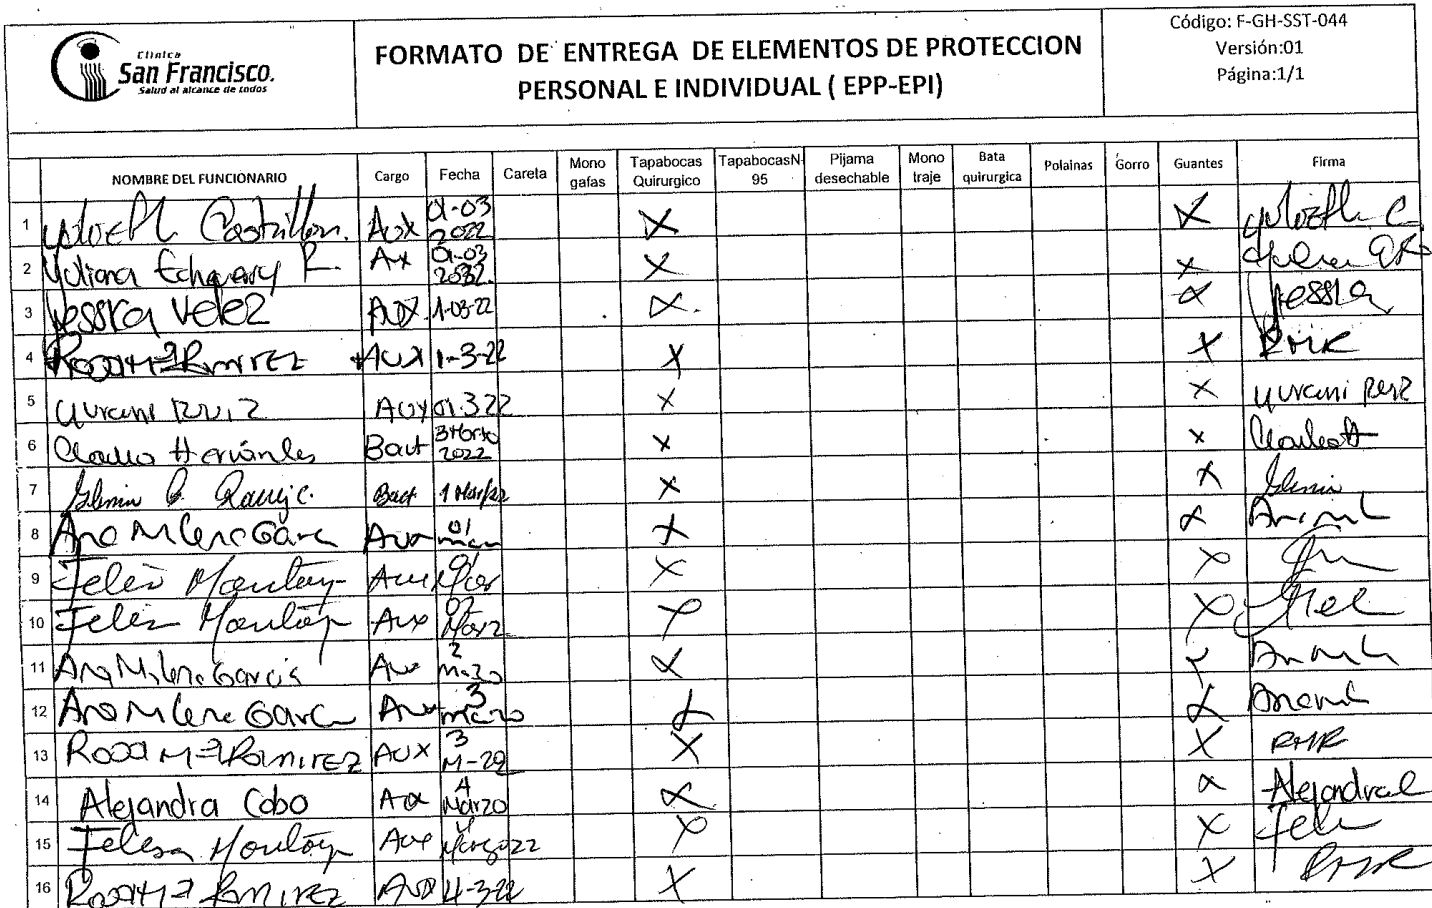 Clínica
San Francisco.
Salud al alcance de todos
FORMATO DE ENTREGA DE ELEMENTOS DE PROTECCION
PERSONAL E INDIVIDUAL ( EPP-EPI)
Código: F-GH-SST-044
Versión:01
Página:1/1
NOMBRE DEL FUNCIONARIO Cargo Fecha Careta Mono gafas Tapabocas Quirurgico TapabocasN-95 Pijama desechable Mono traje Bata quirurgica Polainas Gorro Guantes Firma
1 Castrillon. Aux 01-03 2022 X X
2 Yuliana Echavarry R. Ax 01-03 X X
3 Yessica Velez Aux 1-03-22 X X Yessica
4 Rosa Mª Ramirez Aux 1-3-22 X X RMR
5 Yurani Ruiz Aux 01.3.22 X X Yurani Ruiz
6 Hernández Bact 2022 X X
7 Bact 1 Mar/22 X X
8 Ana Milena Garc Aux 01 X X
9 Montoy Aux X X
10 Montoy Aux 02 Marz X X
11 Ana Milena García Aux 2 Marzo X X
12 Ana Milena Garc Aux 3 Marzo X X
13 Rosa Mª Ramirez Aux 3 M-22 X X RMR
14 Alejandra Cobo Aux 4 Marzo X X Alejandra C
15 Montoy Aux X X
16 Rosa Mª Ramirez Aux 4-3-22 X X RMR